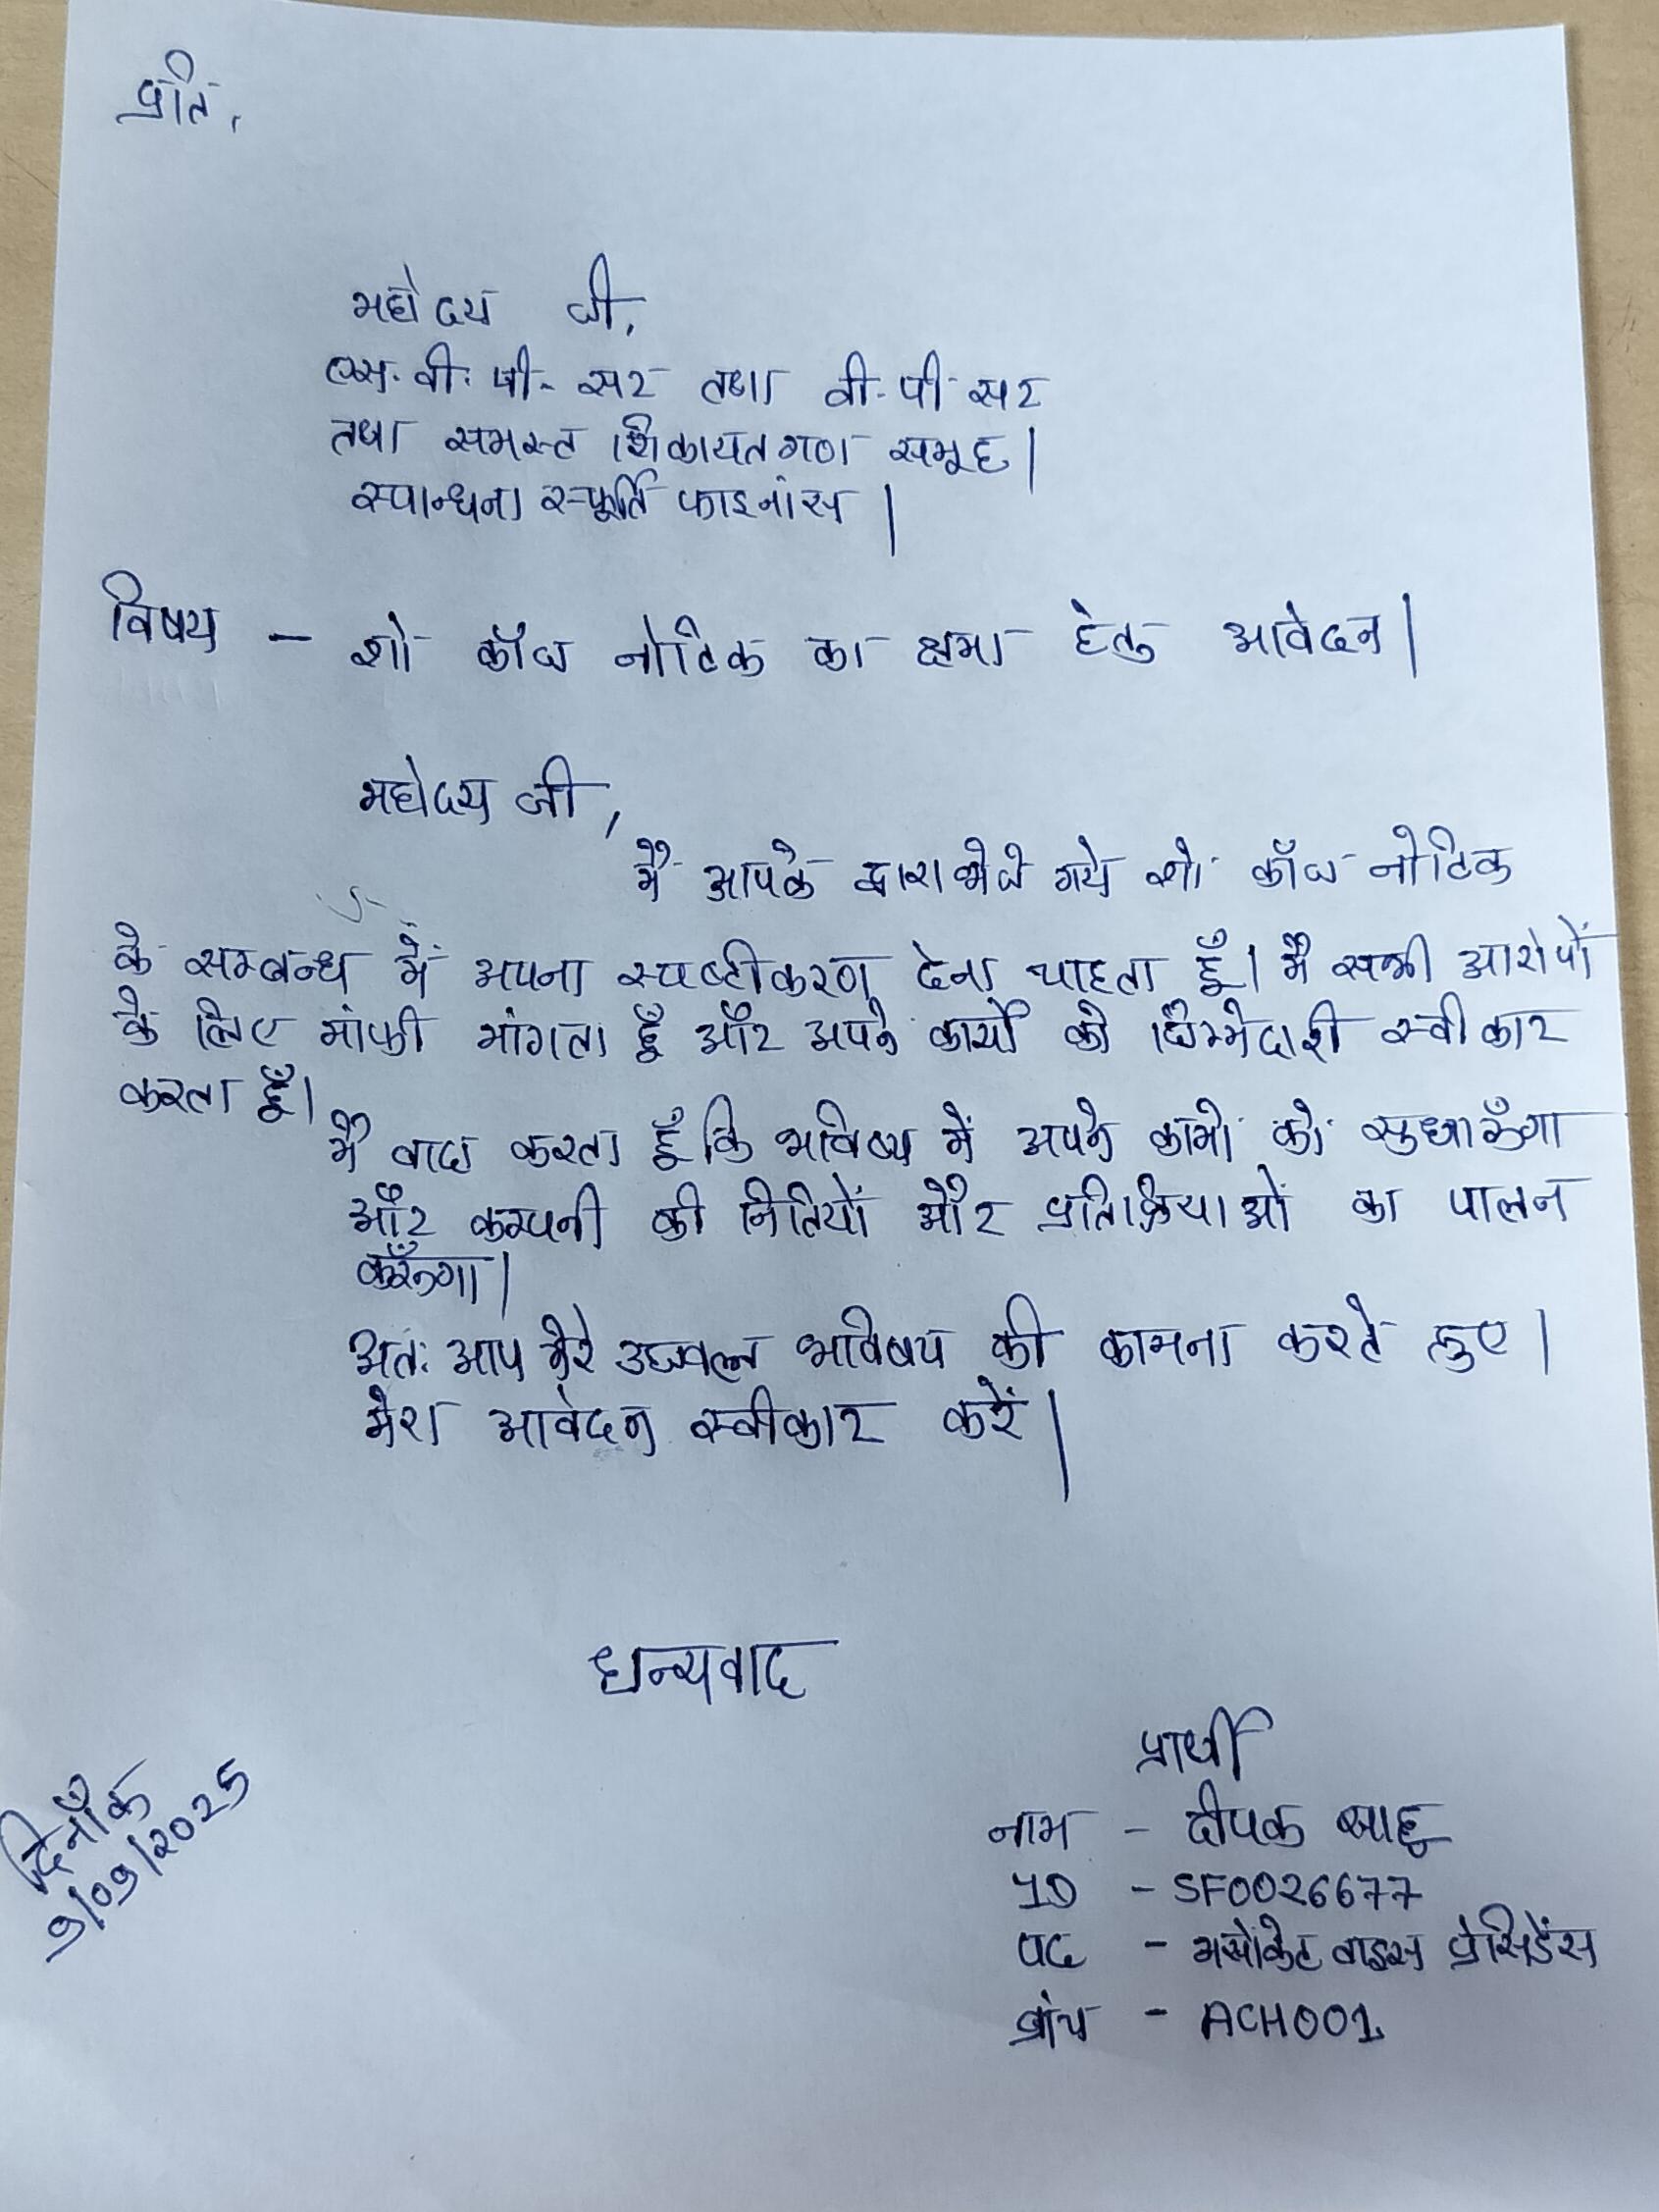 प्रति,
महोदय जी,
एस. वी. पी. सर तथा वी. पी सर
तथा समस्त शिकायतगण समूह।
स्पान्धना स्फूर्ति फाइनांस।
विषय – शो कॉज नोटिक का क्षमा हेतु आवेदन।
महोदय जी,
मैं आपके द्वारा भेजे गये शो कॉज नोटिक
के सम्बन्ध में अपना स्पष्टीकरण देना चाहता हूँ। मैं सभी आरोपों
के लिए मांफी मांगता हूँ और अपने कार्यों की जिम्मेदारी स्वीकार
करता हूँ।
मैं वादा करता हूँ कि भविष्य में अपने कामों को सुधारूँगा
और कम्पनी की नितियों और प्रतिक्रियाओं का पालन
करूँगा।
अतः आप मेरे उज्वल्न भविषय की कामना करते हुए।
मेरा आवेदन स्वीकार करें।
धन्यवाद
प्रार्थी
नाम – दीपक साहू
ID – SF0026677
पद – असोकेट वाइस प्रेसिडेंस
ब्रांच – ACH001
दिनाँक
9/09/2025